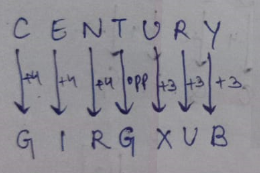 C E N T U R Y
+4 +4 +4 opp +3 +3 +3
G I R G X U B